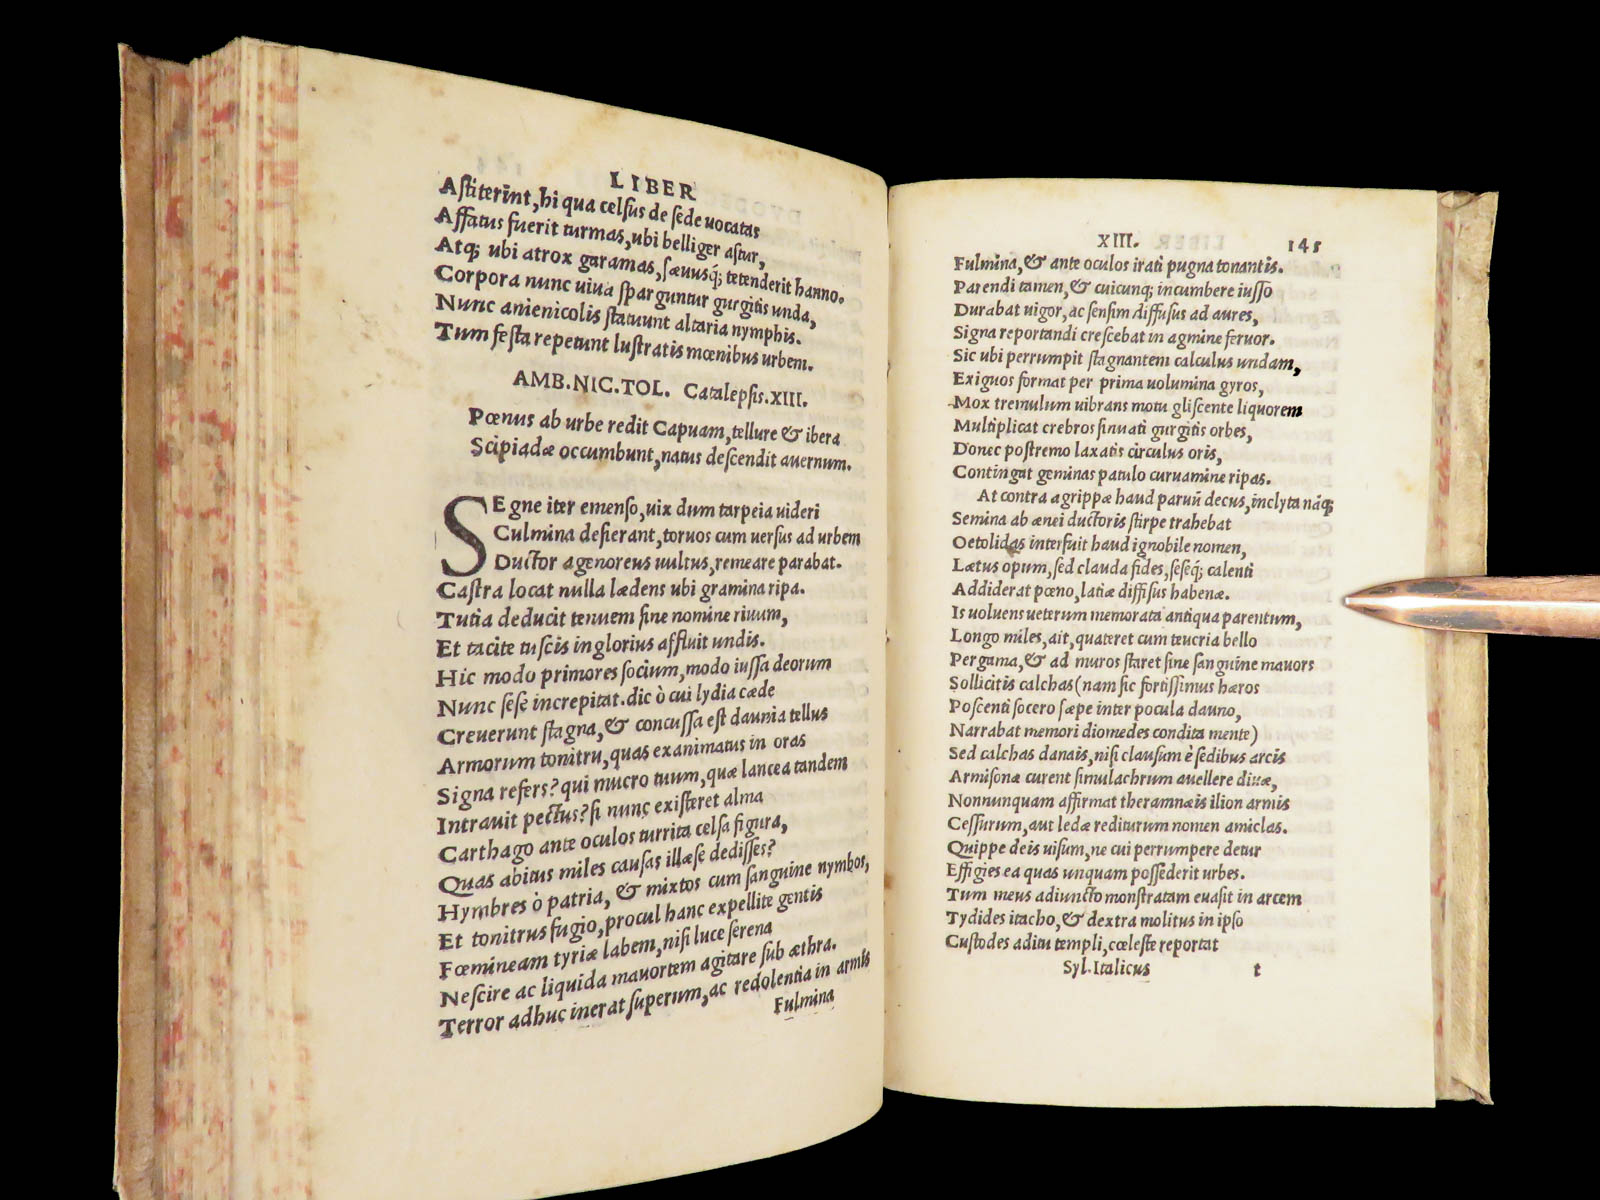 LIBER
Astiterint, hi qua celsus de sede uocatas
Affatus fuerit turmas, ubi belliger astur,
Atq; ubi atrox garamas, sæuusq́; tetenderit hanno.
Corpora nunc uiua sparguntur gurgitis unda,
Nunc anienicolis statuunt altaria nymphis.
Tum festa repetunt lustratis mœnibus urbem.
AMB. NIC. TOL. Catalepsis. XIII.
Pœnus ab urbe redit Capuam, tellure & ibera
Scipiadæ occumbunt, natus descendit auernum.
SEgne iter emenso, uix dum tarpeia uideri
Culmina desierant, toruos cum uersus ad urbem
Ductor agenoreus uultus, remeare parabat.
Castra locat nulla lædens ubi gramina ripa.
Tutia deducit tenuem sine nomine riuum,
Et tacite tuscis inglorius affluit undis.
Hic modo primores socium, modo iussa deorum
Nunc sese increpitat. dic ò cui lydia cæde
Creuerunt stagna, & concussa est daunia tellus
Armorum tonitru, quas exanimatus in oras
Signa refers? qui mucro tuum, quæ lancea tandem
Intrauit pectus? si nunc existeret alma
Carthago ante oculos turrita celsa figura,
Quas abitus miles causas illæse dedisses?
Hymbres ò patria, & mixtos cum sanguine nymbos,
Et tonitrus fugio, procul hanc expellite gentis
Fœmineam tyriæ labem, nisi luce serena
Nescire ac liquida mauortem agitare sub æthra.
Terror adhuc inerat superum, ac redolentia in armis
Fulmina
XIII. 145
Fulmina, & ante oculos irati pugna tonantis.
Parendi tamen, & cuicunq; incumbere iusso
Durabat uigor, ac sensim diffusus ad aures,
Signa reportandi crescebat in agmine feruor.
Sic ubi perrumpit stagnantem calculus undam,
Exiguos format per prima uolumina gyros,
Mox tremulum uibrans motu gliscente liquorem
Multiplicat crebros sinuati gurgitis orbes,
Donec postremo laxatis circulus oris,
Contingat geminas patulo curuamine ripas.
At contra agrippæ haud paruū decus, inclyta nāq;
Semina ab ænei ductoris stirpe trahebat
Oetolidas interfuit haud ignobile nomen,
Lætus opum, sed clauda fides, seseq́; calenti
Addiderat pœno, latiæ diffisus habenæ.
Is uoluens ueterum memorata antiqua parentum,
Longo miles, ait, quateret cum teucria bello
Pergama, & ad muros staret sine sanguine mauors
Sollicitis calchas (nam sic fortissimus hæros
Poscenti socero sæpe inter pocula dauno,
Narrabat memori diomedes condita mente)
Sed calchas danais, nisi clausum è sedibus arcis
Armisonæ curent simulachrum auellere diuæ,
Nonnunquam affirmat theramnæis ilion armis
Cessurum, aut ledæ rediturum nomen amiclas.
Quippe deis uisum, ne cui perrumpere detur
Effigies ea quas unquam possederit urbes.
Tum meus adiuncto monstratam euasit in arcem
Tydides itacho, & dextra molitus in ipso
Custodes aditu templi, cœleste reportat
Syl. Italicus t